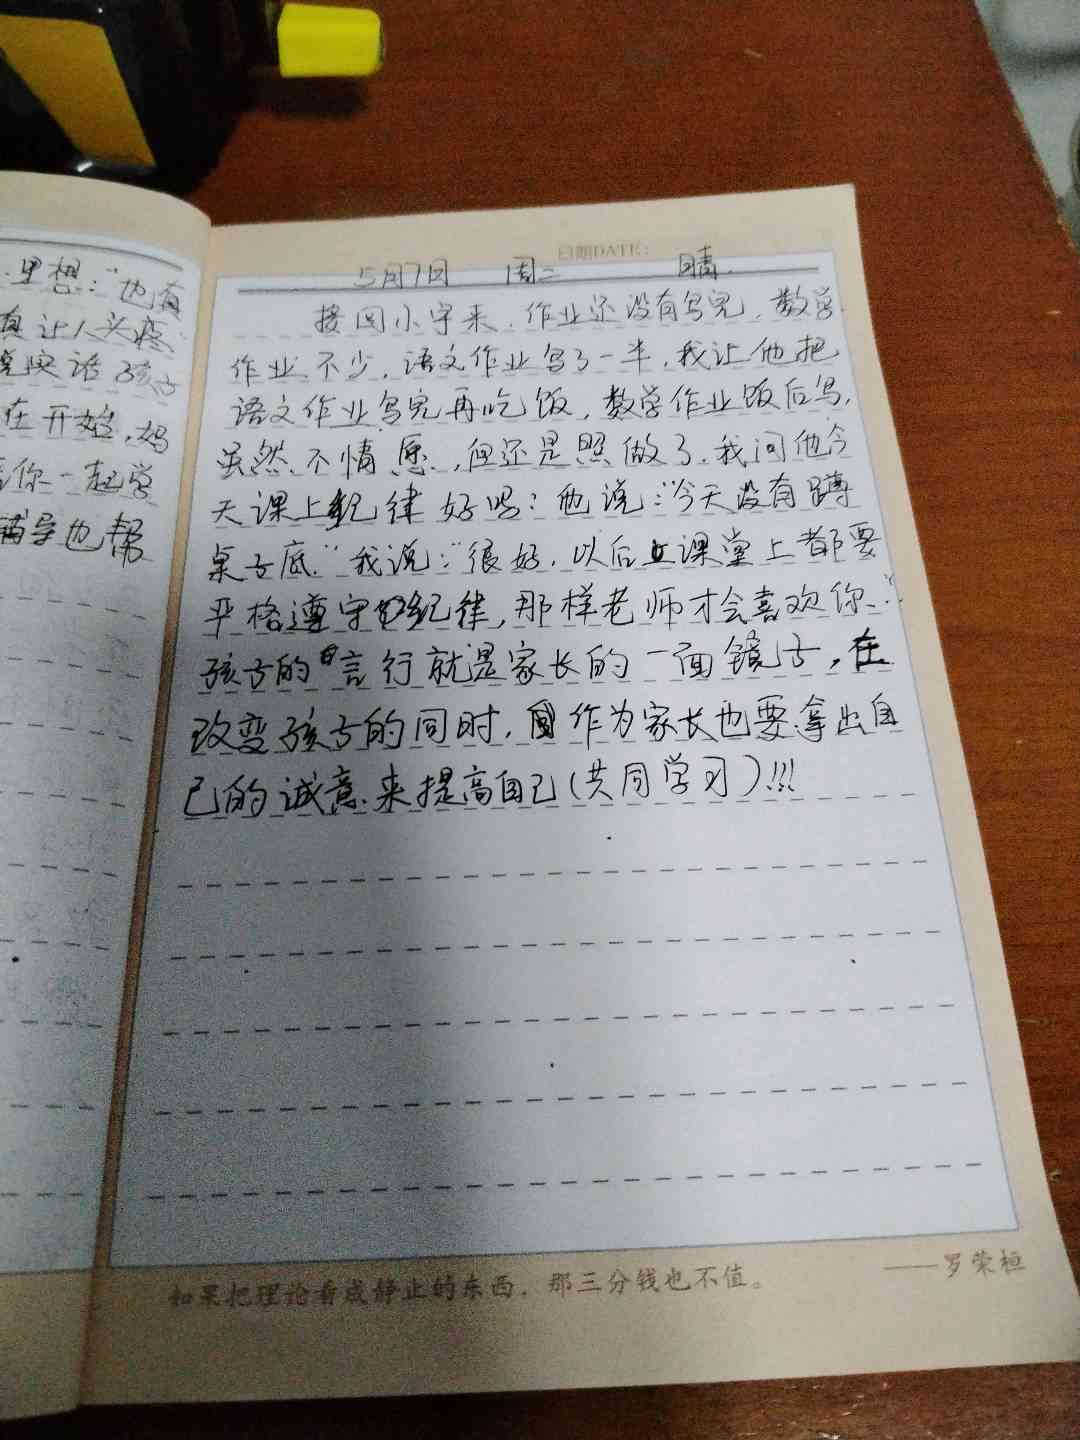 里想:"也有
真让人头疼
孩子
在开始,妈
你一起学
辅导也帮
日期DATE:
5月7日 周二 晴.
接回小宇来,作业还没有写完,数学
作业不少,语文作业写了一半,我让他把
语文作业写完再吃饭,数学作业饭后写,
虽然不情愿,但还是照做了.我问他今
天课上纪律好吗:他说:"今天没有蹲
桌子底."我说:"很好,以后上课堂上都要
严格遵守纪律,那样老师才会喜欢你."
孩子的言行就是家长的一面镜子,在
改变孩子的同时,作为家长也要拿出自
己的诚意来提高自己(共同学习)!!!
如果把理论看成静止的东西,那三分钱也不值。
——罗荣桓